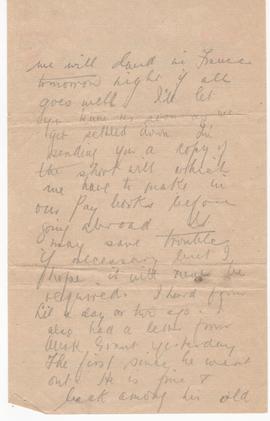 we will land in France
tomorrow night if all
goes well I'll let
you know as soon as we
get settled down I'm
sending you a copy of
the short will which
we have to make in
our Pay books before
going abroad It
may save trouble
if necessary but I
hope it will never be
required. I heard from
Lil a day or two ago. I
also had a letter from
Grant yesterday
The first since he went
out. He is fine &
back among his old